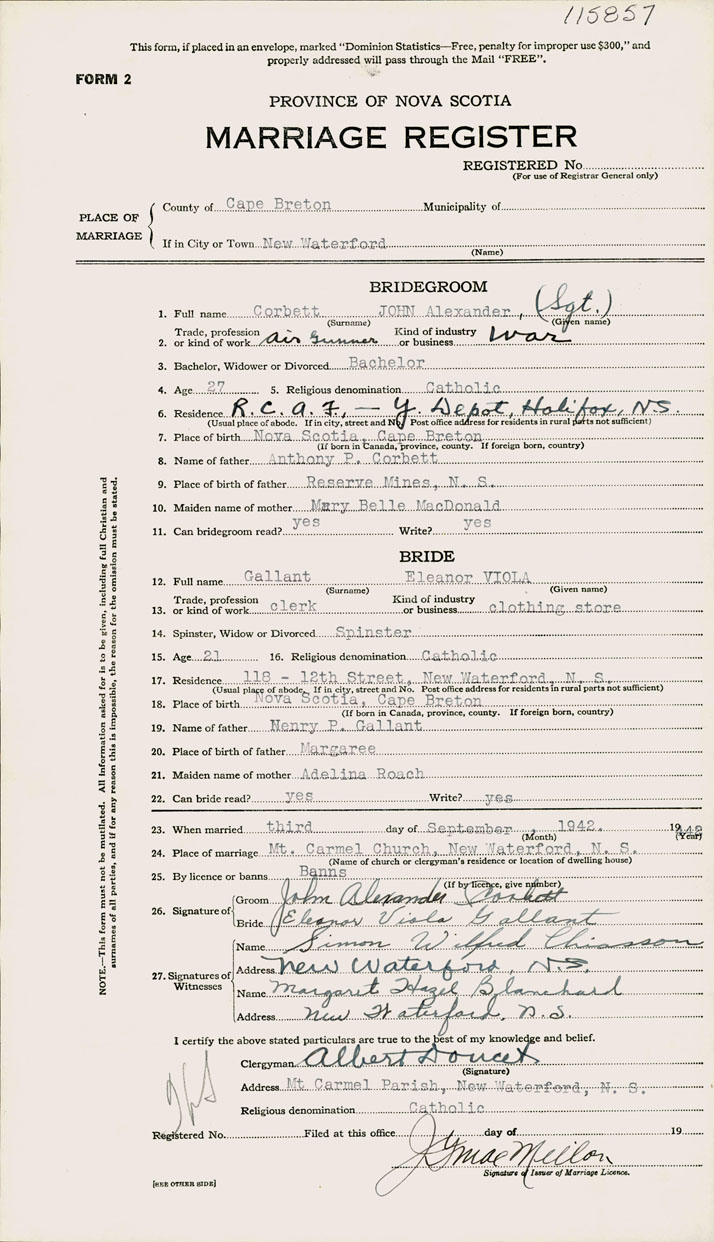 115857
This form, if placed in an envelope, marked "Dominion Statistics—Free, penalty for improper use $300," and
properly addressed will pass through the Mail "FREE".
FORM 2
PROVINCE OF NOVA SCOTIA
MARRIAGE REGISTER
REGISTERED No.
(For use of Registrar General only)
PLACE OF MARRIAGE
County of Cape Breton Municipality of
If in City or Town New Waterford
(Name)
BRIDEGROOM
1. Full name Corbett JOHN Alexander, (Sgt.)
(Surname) (Given name)
2. Trade, profession or kind of work Air Gunner Kind of industry or business War
3. Bachelor, Widower or Divorced Bachelor
4. Age 27 5. Religious denomination Catholic
6. Residence R.C.A.F. — Y. Depot, Halifax, N.S.
(Usual place of abode. If in city, street and No. Post office address for residents in rural parts not sufficient)
7. Place of birth Nova Scotia, Cape Breton
(If born in Canada, province, county. If foreign born, country)
8. Name of father Anthony P. Corbett
9. Place of birth of father Reserve Mines, N. S.
10. Maiden name of mother Mary Belle MacDonald
11. Can bridegroom read? yes Write? yes
BRIDE
12. Full name Gallant Eleanor VIOLA
(Surname) (Given name)
13. Trade, profession or kind of work clerk Kind of industry or business clothing store
14. Spinster, Widow or Divorced Spinster
15. Age 21 16. Religious denomination Catholic
17. Residence 118 - 12th Street, New Waterford, N. S.
(Usual place of abode. If in city, street and No. Post office address for residents in rural parts not sufficient)
18. Place of birth Nova Scotia, Cape Breton
(If born in Canada, province, county. If foreign born, country)
19. Name of father Henry P. Gallant
20. Place of birth of father Margaree
21. Maiden name of mother Adelina Roach
22. Can bride read? yes Write? yes
23. When married third day of September, 1942. 19
(Month) (Year)
24. Place of marriage Mt. Carmel Church, New Waterford, N. S.
(Name of church or clergyman's residence or location of dwelling house)
25. By licence or banns Banns
(If by licence, give number)
26. Signature of
Groom John Alexander Corbett
Bride Eleanor Viola Gallant
27. Signatures of Witnesses
Name Simon Wilfred Chiasson
Address New Waterford, N.S.
Name Margaret Hazel Blanchard
Address New Waterford, N.S.
I certify the above stated particulars are true to the best of my knowledge and belief.
Clergyman Albert Doucet
(Signature)
Address Mt Carmel Parish, New Waterford, N. S.
Religious denomination Catholic
Registered No. Filed at this office day of 19
MacMillan
Signature of Issuer of Marriage Licence.
[SEE OTHER SIDE]
NOTE.—This form must not be mutilated. All information asked for is to be given, including full Christian and
surnames of all parties, and if for any reason this is impossible, the reason for the omission must be stated.